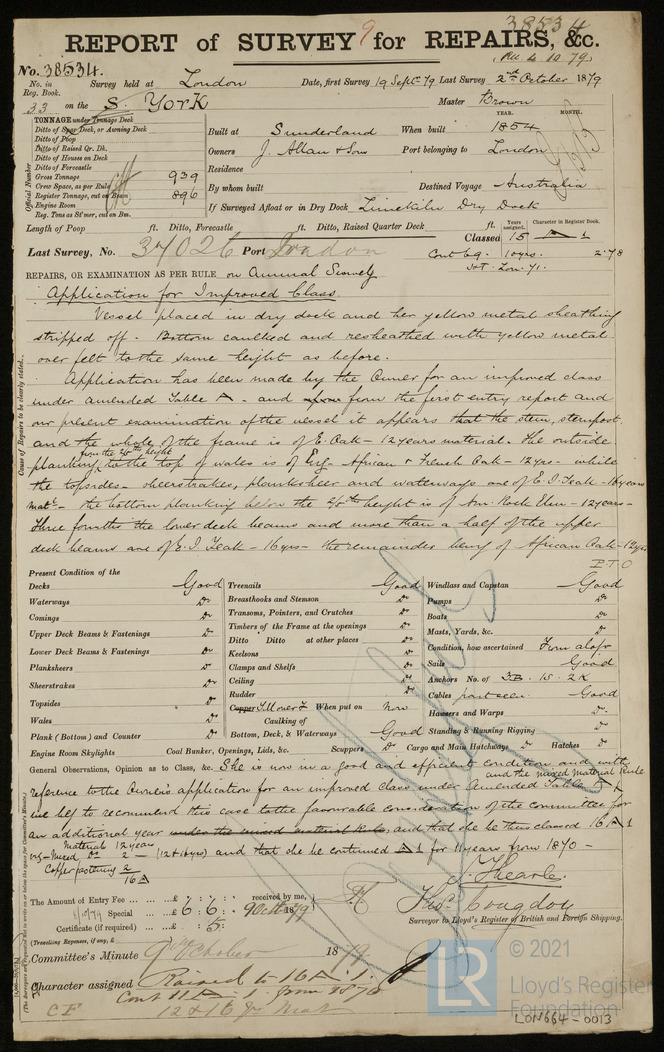 38534
REPORT of SURVEY 9 for REPAIRS, &c.
Rec 4. 10. 79.
No. 38534.
No. in Reg. Book. Survey held at London Date, first Survey 19 Sept 79 Last Survey 2nd October 1879
33 on the S. York Master Brown
TONNAGE under Tonnage Deck YEAR. MONTH.
Ditto of Spar Deck, or Awning Deck Built at Sunderland When built 1854
Ditto of Poop
Ditto of Raised Qr. Dk. Owners J. Allan & Sons Port belonging to London
Ditto of Houses on Deck
Ditto of Forecastle Residence
Gross Tonnage 939
Crew Space, as per Rule By whom built Destined Voyage Australia
Register Tonnage, cut on Beam 896
Engine Room If Surveyed Afloat or in Dry Dock Limekiln Dry Dock
Reg. Tons as St'mer, cut on Bm.
Official Number
Length of Poop ft. Ditto, Forecastle ft. Ditto, Raised Quarter Deck ft. Years assigned. Character in Register Book.
Classed 15 A 1
Last Survey, No. 37026 Port London Cont 69. 10 yrs. 2.78
REPAIRS, OR EXAMINATION AS PER RULE on Annual Survey
Application for Improved Class
Vessel placed in dry dock and her yellow metal sheathing
stripped off. Bottom caulked and resheathed with yellow metal
over felt to the same height as before.
Application has been made by the Owner for an improved class
under amended Table A. and from the first entry report and
our present examination of the vessel it appears that the stem, sternpost
and the whole of the frame is of E. Oak - 12 years material. The outside
from the 4/5th height
planking to the top of wales is of Eng. African & French Oak - 12 yrs - while
the topsides - sheerstrakes, planksheer and waterways are of E.I. Teak - 16 years
matl - the bottom planking below the height is of Am. Rock Elm - 12 years -
three fourths the lower deck beams and more than a half of the upper
deck beams are of E.I. Teak - 16 yrs - the remainder being of African Oak - 12 yrs
P.T.O
Cause of Repairs to be clearly stated.
Present Condition of the
Decks Good Treenails Good Windlass and Capstan Good
Waterways Do Breasthooks and Stemson Do Pumps Do
Comings Do Transoms, Pointers, and Crutches Do Boats Do
Upper Deck Beams & Fastenings Do Timbers of the Frame at the openings Do Masts, Yards, &c. Do
Ditto Ditto at other places Do Condition, how ascertained From aloft
Lower Deck Beams & Fastenings Do Keelsons Do Sails Good
Planksheers Do Clamps and Shelfs Do
Sheerstrakes Do Ceiling Do Anchors No. of 3B. 1S. 2K
Rudder Do Cables part seen. Good
Topsides Do Copper When put on Now
Wales Do Caulking of Hawsers and Warps Do
Plank (Bottom) and Counter Do Bottom, Deck, & Waterways Good Standing & Running Rigging Do
Engine Room Skylights Coal Bunker, Openings, Lids, &c. Scuppers Do Cargo and Main Hatchways Do Hatches Do
General Observations, Opinion as to Class, &c. She is now in a good and efficient condition and with
and the mixed material Rule
reference to the Owner's application for an improved class under Amended Table A
we beg to recommend this case to the favourable consideration of the committee for
an additional year under the mixed material Rule, and that she be thus classed 16 A 1
Material 12 years
viz - Mixed (12 & 16 yrs) and that she be continued A 1 for 11 years from 1870 -
16 A
The Amount of Entry Fee ... ... £ : : received by me,
Special ... ... £ 6 : 6 : 9 Oct 1879
Certificate (if required) ... £ : 5 :
(Travelling Expenses, if any, £
J. Thearle.
Thos. Congdon
Surveyor to Lloyd's Register of British and Foreign Shipping.
Committee's Minute 9th October 1879
Character assigned Raised to 16 A. 1.
Cont 11 A - 1 from 1870
C F 12 & 16 yr Mat
© 2021
LR Lloyd's Register
Foundation
LON664-0013